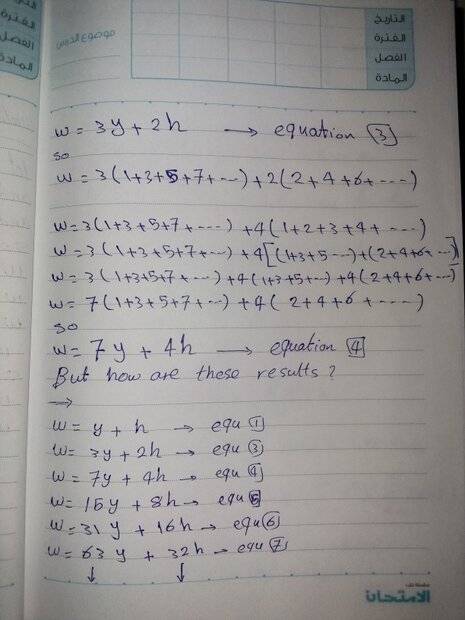 التاريخ
الفترة
الفصل
المادة
موضوع الدرس
الفترة
الفصل
المادة
w = 3y + 2h → equation 3
so
w = 3(1+3+5+7+----) + 2(2+4+6+----)
w = 3(1+3+5+7+----) + 4(1+2+3+4+----)
w = 3(1+3+5+7+----) + 4[(1+3+5---)+(2+4+6+---)]
w = 3(1+3+5+7+---) + 4(1+3+5+---) + 4(2+4+6+---)
w = 7(1+3+5+7+---) + 4(2+4+6+----)
so
w = 7y + 4h → equation 4
But how are these results?
→
w = y + h → equ 1
w = 3y + 2h → equ 3
w = 7y + 4h → equ 4
w = 15y + 8h → equ 5
w = 31y + 16h → equ 6
w = 63y + 32h → equ 7
↓ ↓
الامتحان